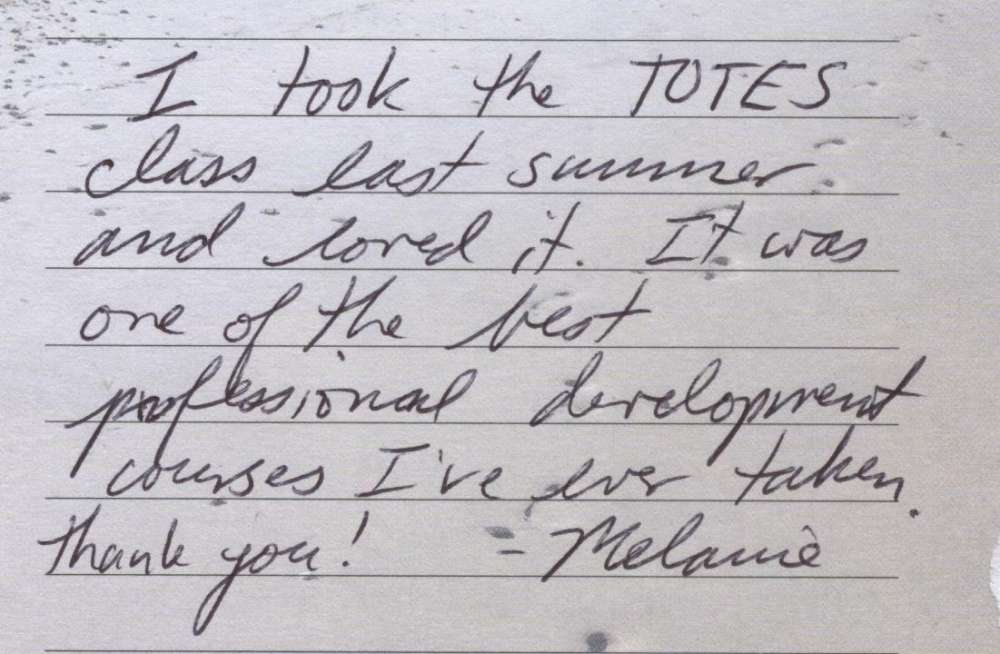 I took the TOTES
class last summer
and loved it. It was
one of the best
professional development
courses I've ever taken.
Thank you! - Melanie